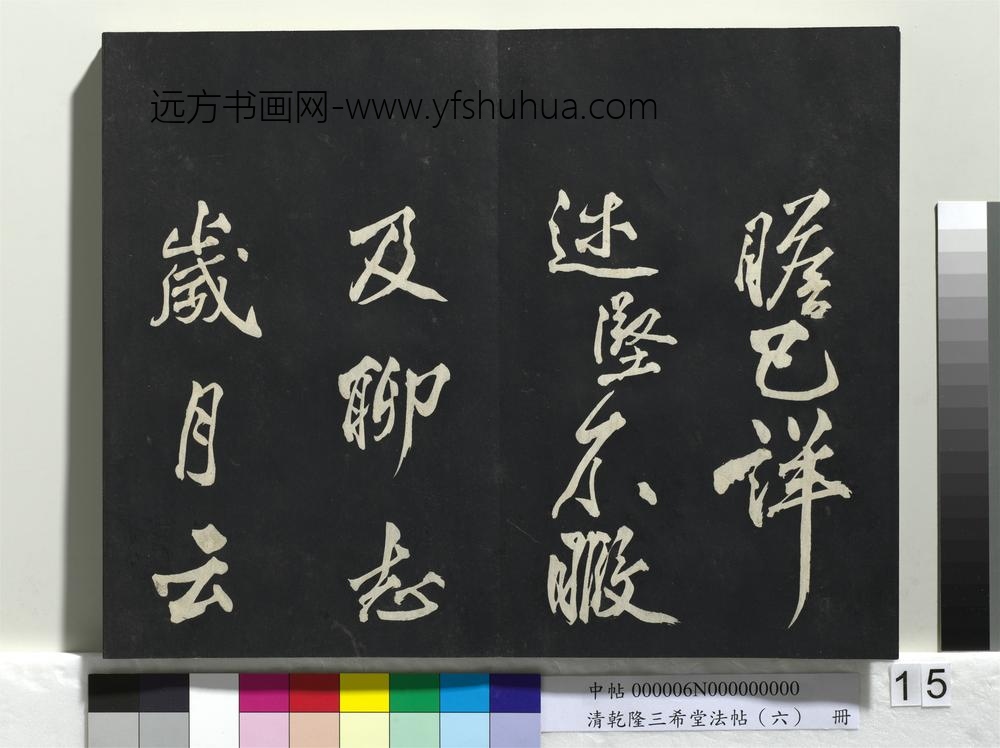 远方书画网-www.yfshuhua.com
瞻已詳
述暇
及聊志
歲月云
中帖 000006N000000000
清乾隆三希堂法帖（六） 冊
15